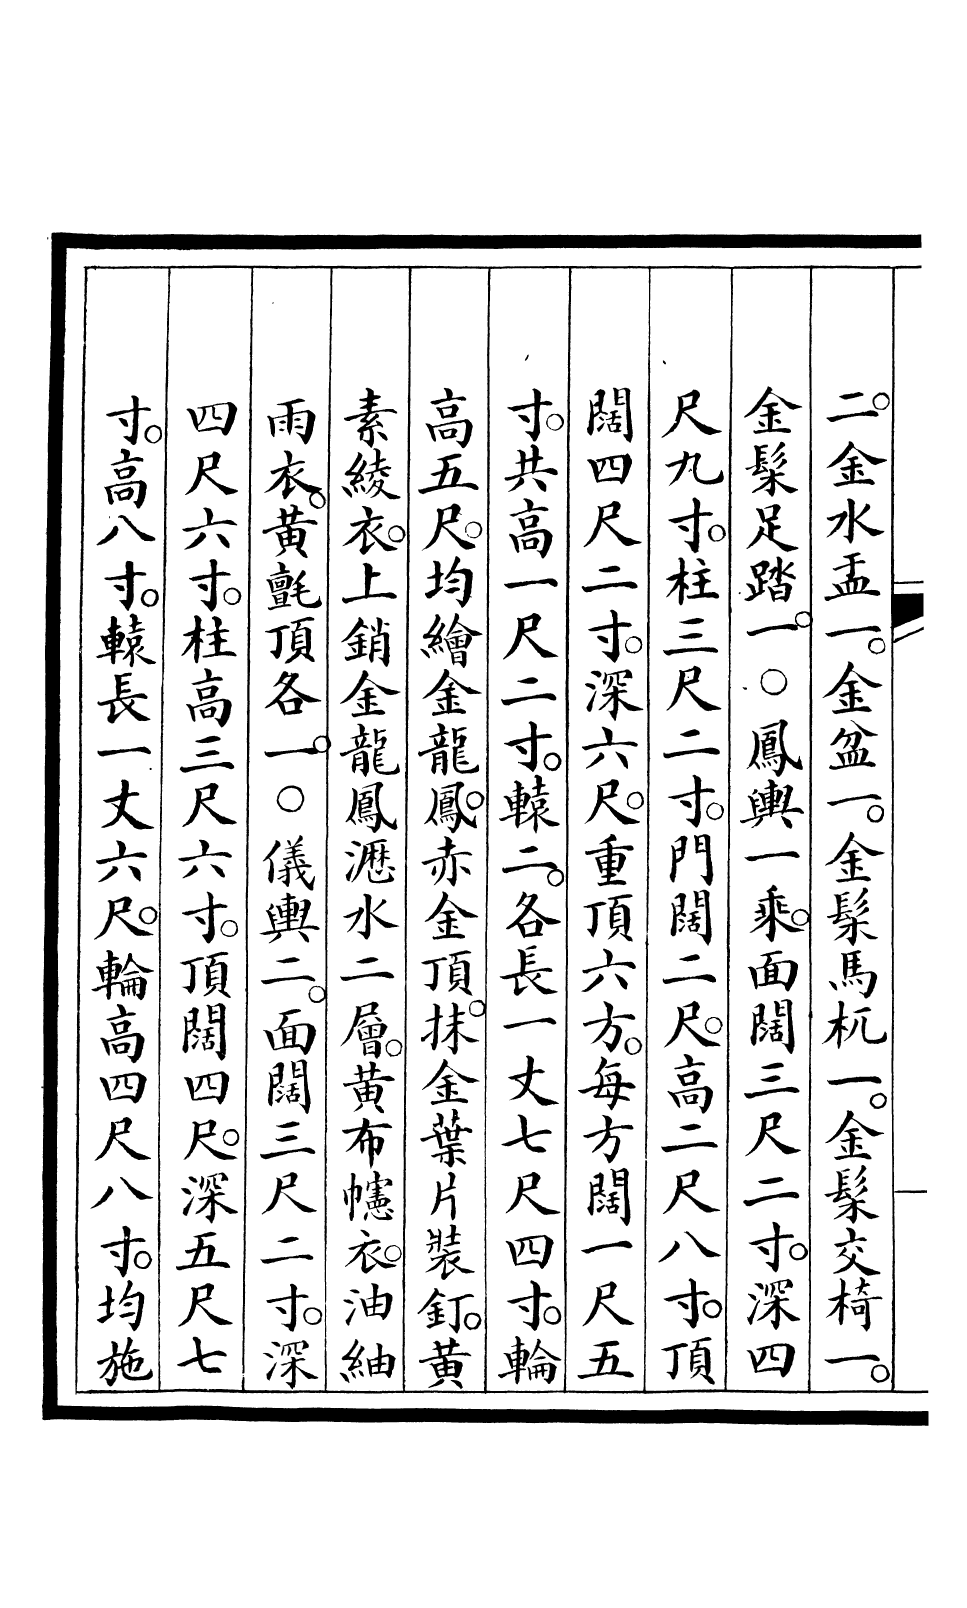 二。金水盂一。金盆一。金髹馬杌一。金髹交椅一。
金髹足踏一。○鳳輿一乘。面闊三尺二寸。深四
尺九寸。柱三尺二寸。門闊二尺。高二尺八寸。頂
闊四尺二寸。深六尺。重頂六方。每方闊一尺五
寸。共高一尺二寸。轅二。各長一丈七尺四寸。輪
高五尺。均繪金龍鳳。赤金頂。抹金葉片裝釘。黃
素綾衣。上銷金龍鳳瀝水二層。黃布幰衣。油紬
雨衣。黃氈頂各一。○儀輿二。面闊三尺二寸。深
四尺六寸。柱高三尺六寸。頂闊四尺。深五尺七
寸。高八寸。轅長一丈六尺。輪高四尺八寸。均施